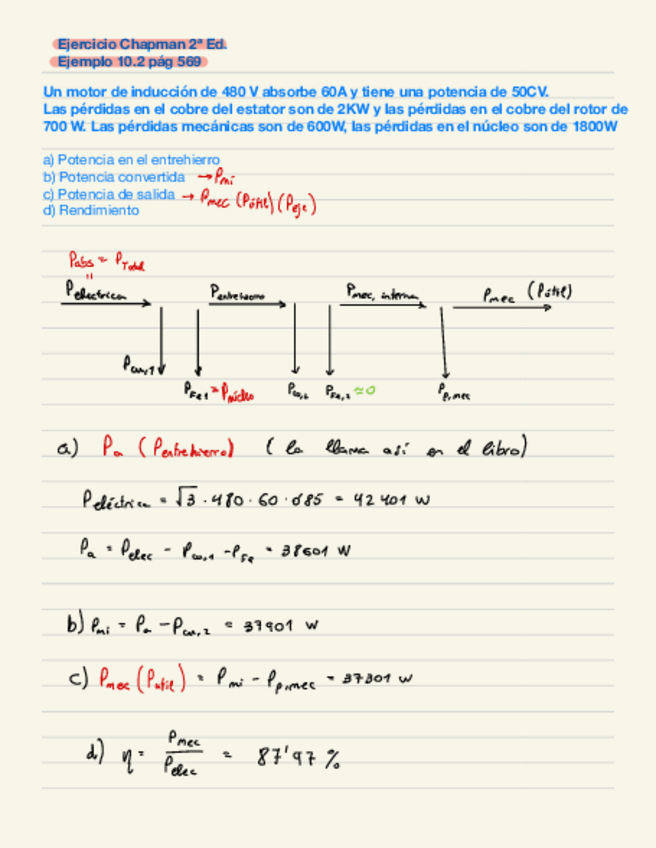 Ejercicio Chapman 2ª Ed.
Ejemplo 10.2 pág 569
Un motor de inducción de 480 V absorbe 60A y tiene una potencia de 50CV.
Las pérdidas en el cobre del estator son de 2KW y las pérdidas en el cobre del rotor de
700 W. Las pérdidas mecánicas son de 600W, las pérdidas en el núcleo son de 1800W
a) Potencia en el entrehierro
b) Potencia convertida → Pmi
c) Potencia de salida → Pmec (Pútil) (Peje)
d) Rendimiento
Pabs = PTotal
"
Pelectrica Pentrehierro Pmec, interna Pmec (Pútil)
Pcu,1
PFe1 = Pnúcleo Pcu,2 PFe,2 ≈0 Pp,mec
a) Pa (Pentrehierro) (la llama así en el libro)
Peléctrica = √3 · 480 · 60 · 0'85 = 42401 W
Pa = Pelec - Pcu,1 - PFe = 38601 W
b) Pmi = Pa - Pcu,2 = 37901 W
c) Pmec (Putil) = Pmi - Pp,mec = 37301 W
d) η = Pmec / Pelec = 87'97 %